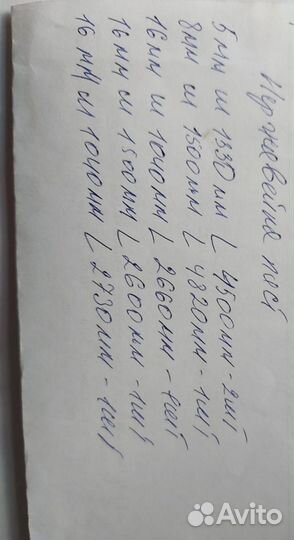 Нержавейка лист
5мм ш 1330мм L 4500мм - 2шт
8мм ш 1500мм L 4820мм - 1шт
16мм ш 1040мм L 2660мм - 1шт
16мм ш 1500мм L 2600мм - 1шт
16мм ш 1040мм L 2730мм - 1шт
Avito